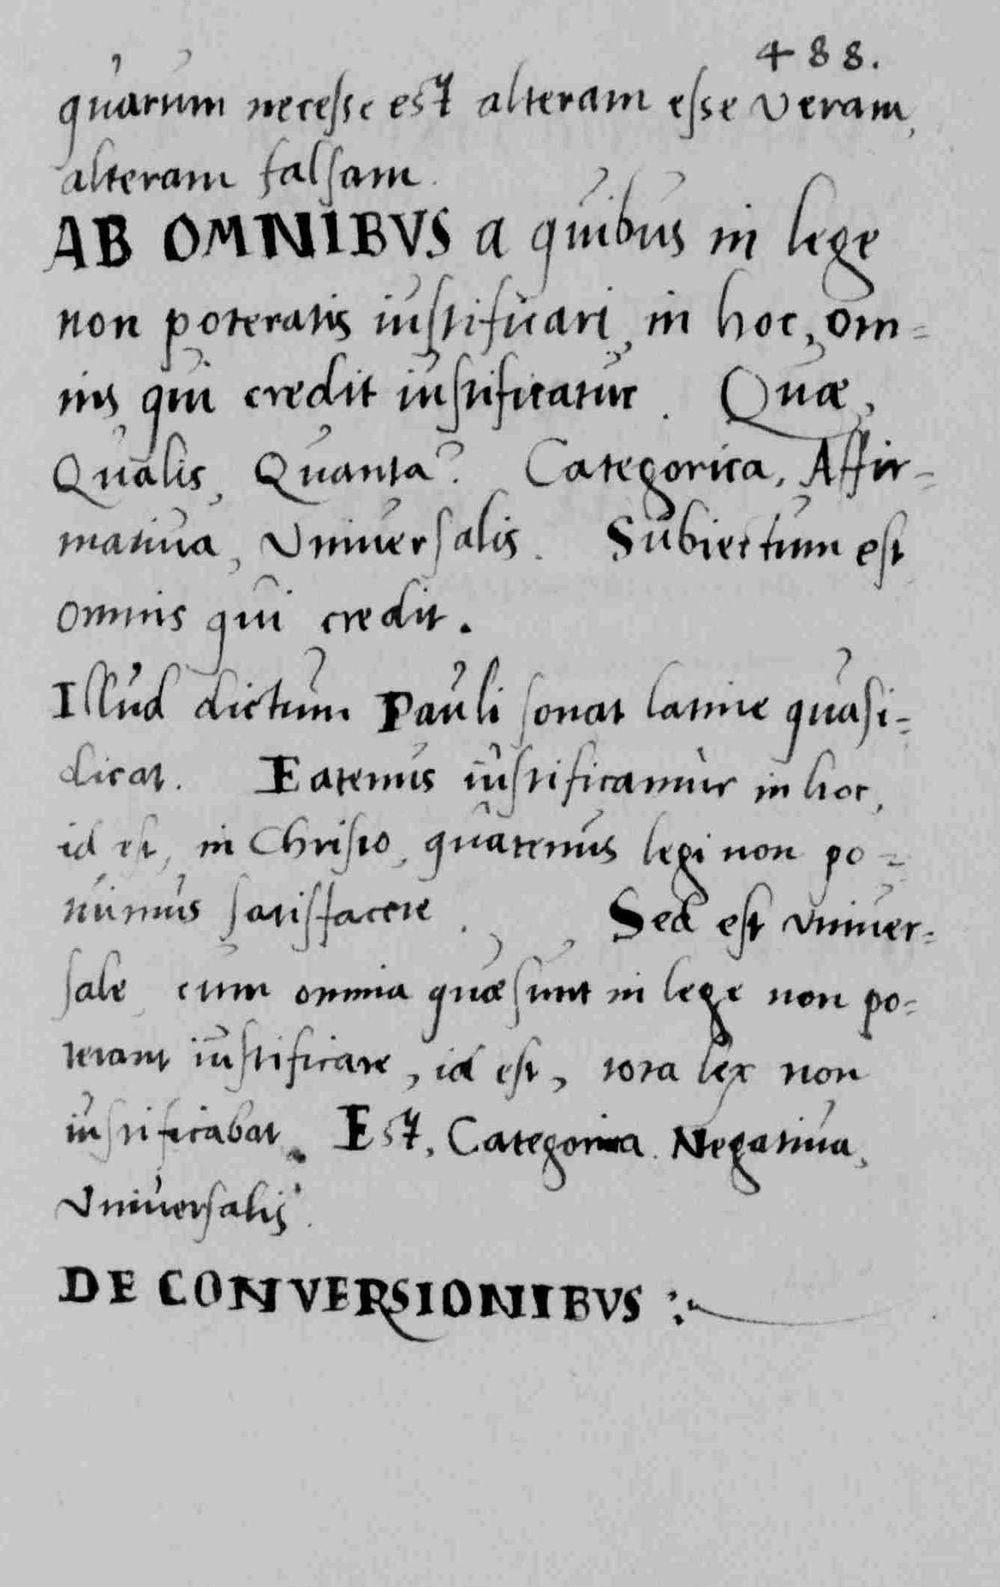 488.
quarum necesse est alteram esse veram,
alteram falsam.
AB OMNIBVS a quibus in lege
non poteratis iustificari, in hoc, om=
nis qui credit iustificatur. Quæ,
Qualis, Quanta? Categorica, Affir=
matiua, Vniuersalis. Subiectum est
omnis qui credit.
Illud dictum Pauli sonat latine quasi=
dicat. Eatenus iustificamur in hoc,
id est, in Christo, quatenus legi non po=
nuimus satisfacere. Sed est vniuer=
sale, cum omnia quæ sunt in lege non po=
terant iustificare, id est, tota lex non
iustificabat. Est, Categorica. Negatiua,
Vniuersalis.
DE CONVERSIONIBVS :